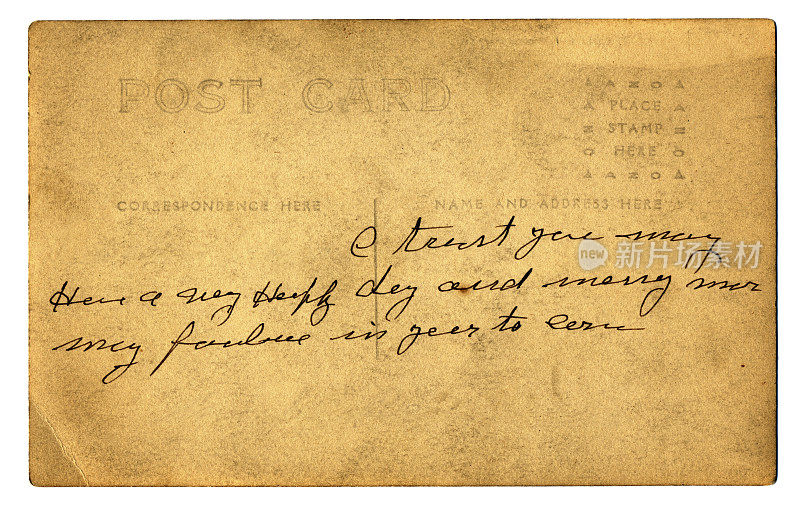 POST CARD
AZOA
PLACE
STAMP
HERE
CORRESPONDENCE HERE
NAME AND ADDRESS HERE
I trust you may
Have a very Happy day and many mor
may follow in year to com
new 新图网